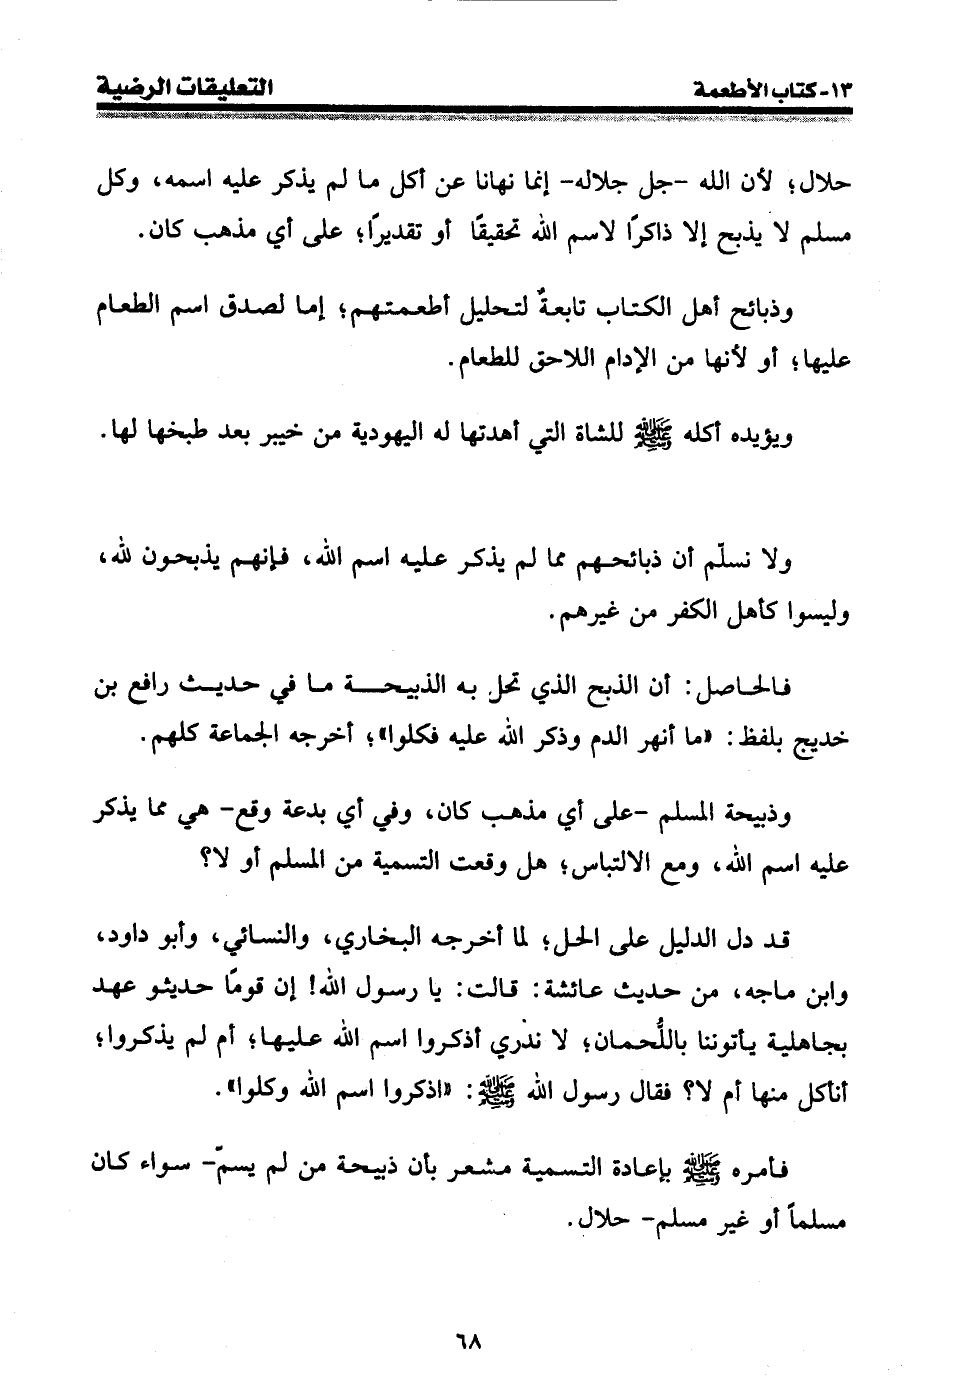 ١٣-كتاب الأطعمة التعليقات الرضية
حلال؛ لأن الله -جل جلاله- إنما نهانا عن أكل ما لم يذكر عليه اسمه، وكل
مسلم لا يذبح إلا ذاكرًا لاسم الله تحقيقًا أو تقديرًا؛ على أي مذهب كان.
وذبائح أهل الكتاب تابعةٌ لتحليل أطعمتهم؛ إما لصدق اسم الطعام
عليها؛ أو لأنها من الإدام اللاحق للطعام.
ويؤيده أكله ﷺ للشاة التي أهدتها له اليهودية من خيبر بعد طبخها لها.
ولا نسلّم أن ذبائحهم مما لم يذكر عليه اسم الله، فإنهم يذبحون لله،
وليسوا كأهل الكفر من غيرهم.
فالحاصل: أن الذبح الذي تحل به الذبيحة ما في حديث رافع بن
خديج بلفظ: «ما أنهر الدم وذكر الله عليه فكلوا»؛ أخرجه الجماعة كلهم.
وذبيحة المسلم -على أي مذهب كان، وفي أي بدعة وقع- هي مما يذكر
عليه اسم الله، ومع الالتباس؛ هل وقعت التسمية من المسلم أو لا؟
قد دل الدليل على الحل؛ لما أخرجه البخاري، والنسائي، وأبو داود،
وابن ماجه، من حديث عائشة: قالت: يا رسول الله! إن قومًا حديثو عهد
بجاهلية يأتوننا باللُّحمان؛ لا ندري أذكروا اسم الله عليها؛ أم لم يذكروا؛
أنأكل منها أم لا؟ فقال رسول الله ﷺ: «اذكروا اسم الله وكلوا».
فأمره ﷺ بإعادة التسمية مشعر بأن ذبيحة من لم يسمّ- سواء كان
مسلماً أو غير مسلم- حلال.
٦٨